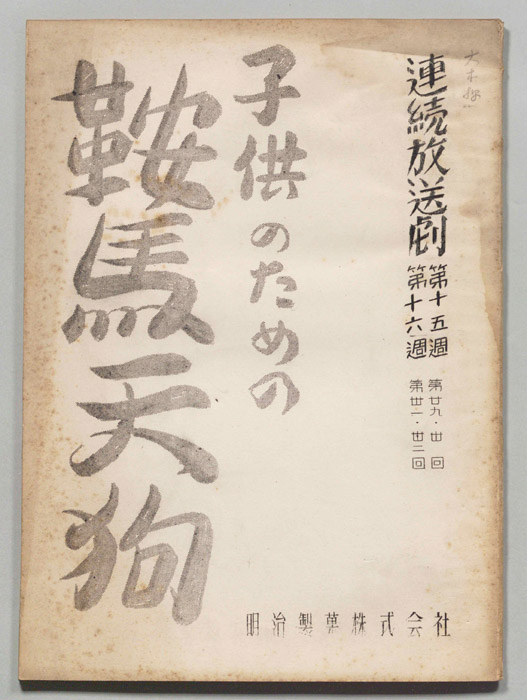 連続放送劇
第十五週 第廿九・卅回
第十六週 第卅一・卅二回
子供のための
鞍馬天狗
明治製菓株式会社